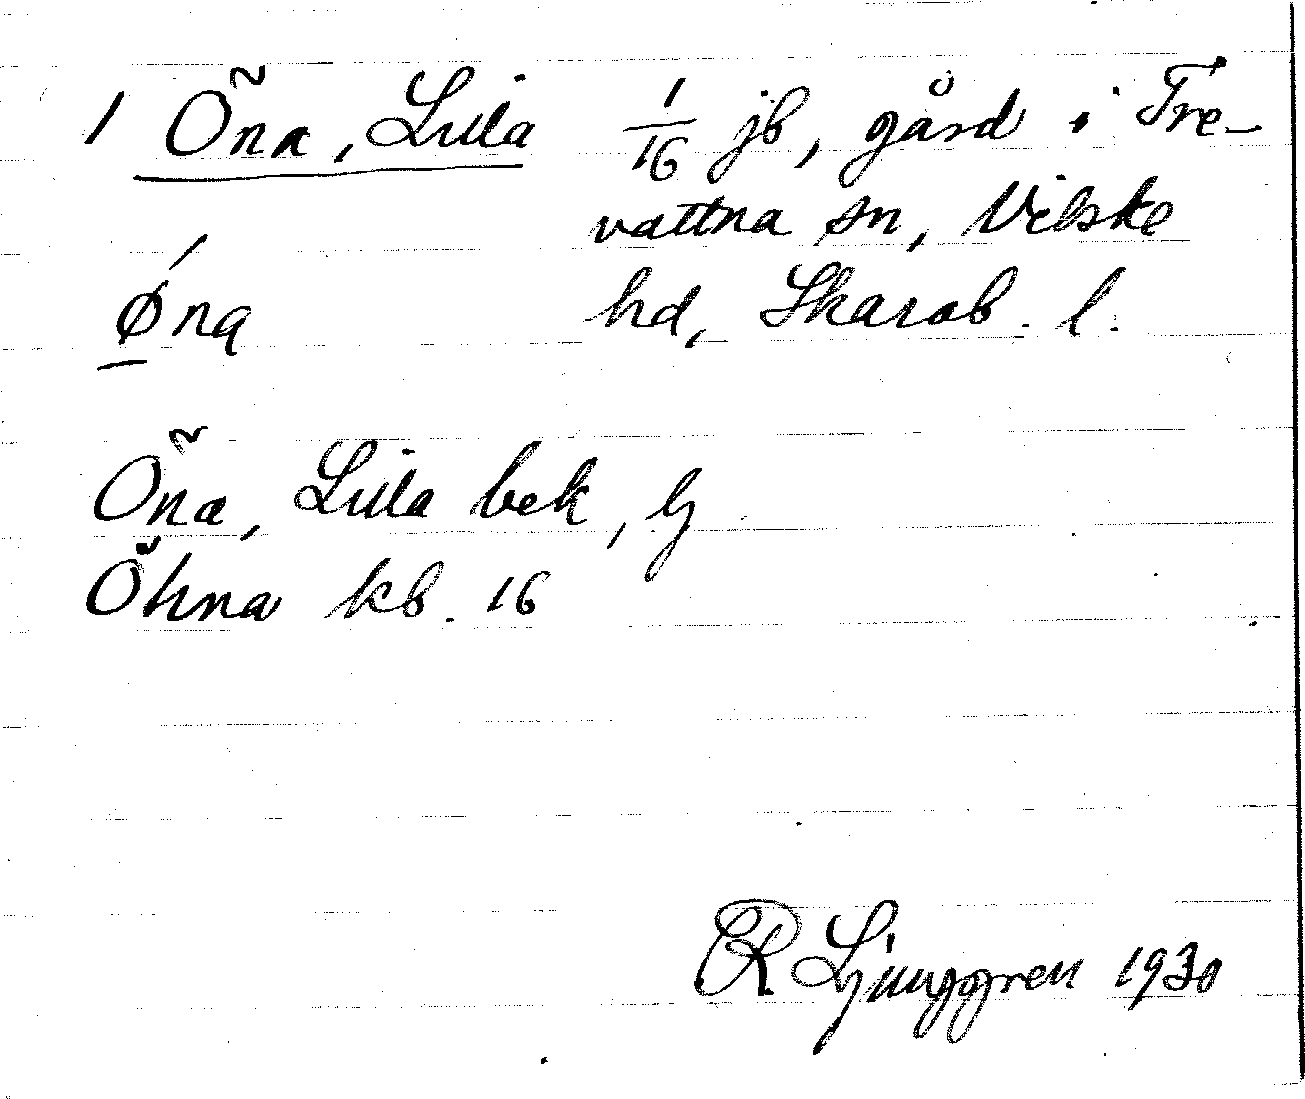 1 Õna, Lilla 1/16 jb, gård i Tre-
vattna sn, Vilske
hd, Skarab. l.
ǿna
Õna, Lilla bek, lj
Õhna kb. 16
R Ljunggren 1930